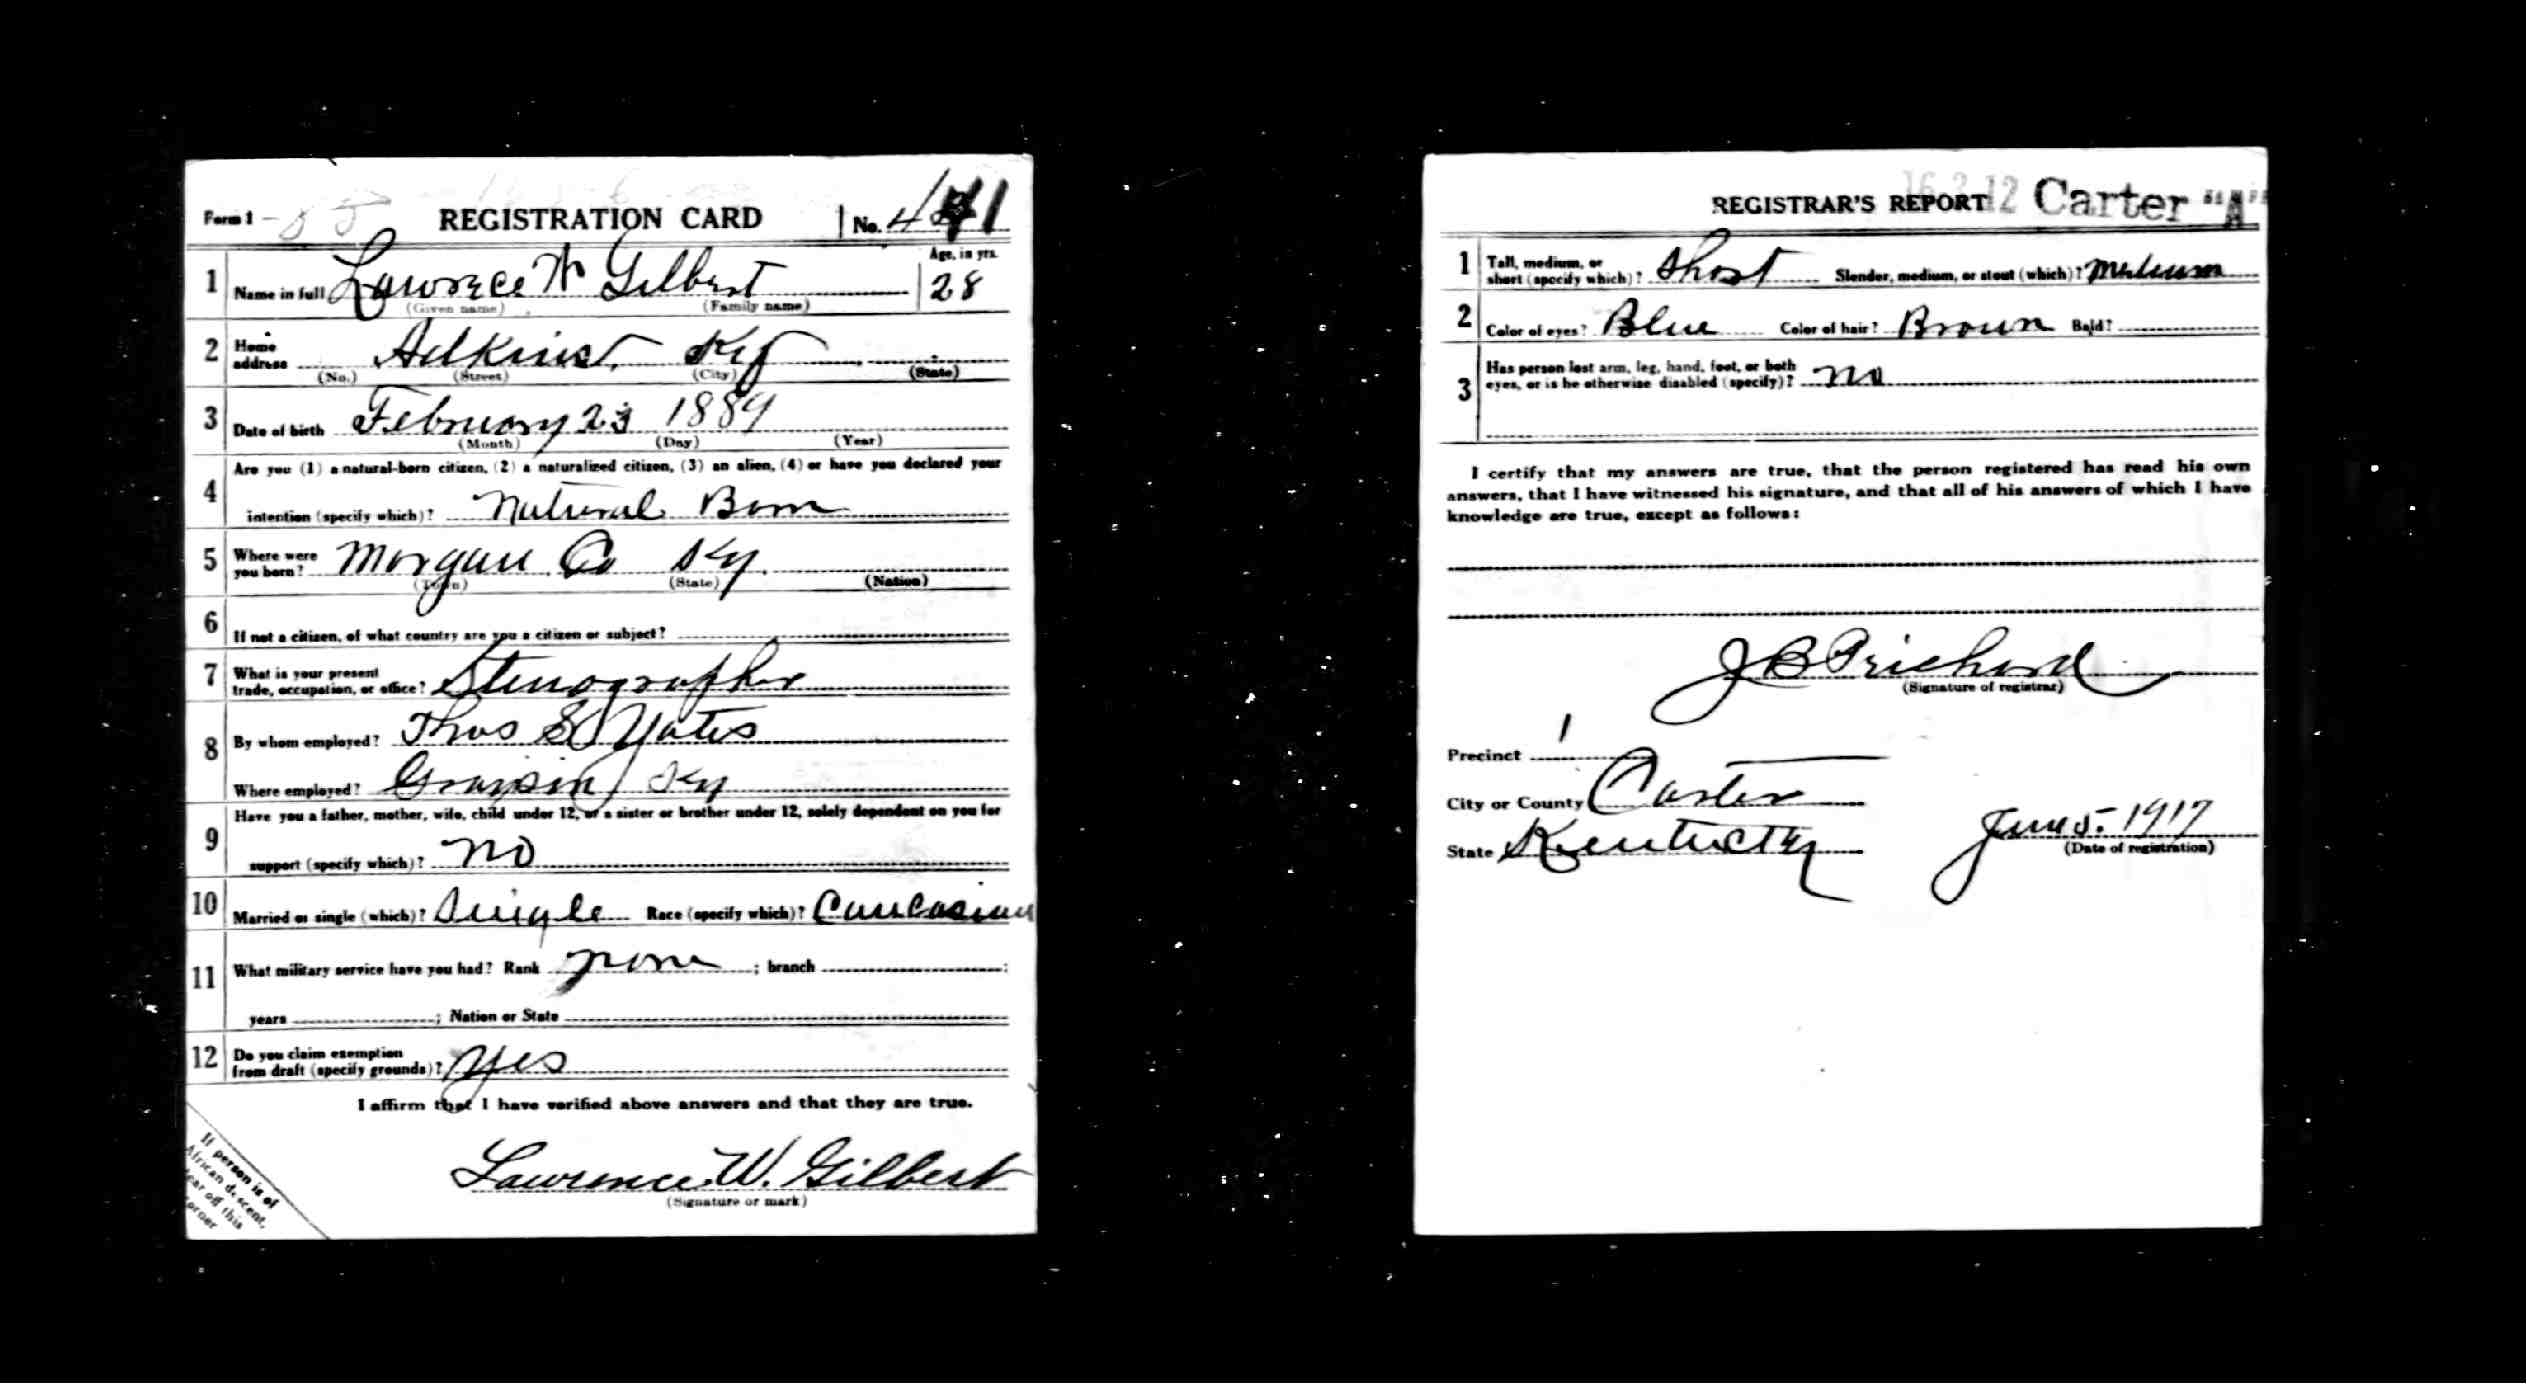 Form 1
REGISTRATION CARD
No.
1 Name in full Lawrece W Gilbert Age, in yrs. 28
(Given name) (Family name)
2 Home address Adkins, Ky
(No.) (Street) (City) (State)
3 Date of birth February 23 1889
(Month) (Day) (Year)
4 Are you (1) a natural-born citizen, (2) a naturalized citizen, (3) an alien, (4) or have you declared your
intention (specify which)? Natural Born
5 Where were you born? Morgan Co Ky.
(Town) (State) (Nation)
6 If not a citizen, of what country are you a citizen or subject?
7 What is your present trade, occupation, or office? Stenographer
8 By whom employed? Thos S Yates
Where employed? Grayson Ky
9 Have you a father, mother, wife, child under 12, or a sister or brother under 12, solely dependent on you for
support (specify which)? no
10 Married or single (which)? Single Race (specify which)? Caucasian
11 What military service have you had? Rank none ; branch ;
years ; Nation or State
12 Do you claim exemption from draft (specify grounds)? Yes
I affirm that I have verified above answers and that they are true.
Lawrence W. Gilbert
(Signature or mark)
If person is of
African descent,
tear off this
corner
REGISTRAR'S REPORT Carter "A"
1 Tall, medium, or short (specify which)? Short Slender, medium, or stout (which)? Medium
2 Color of eyes? Blue Color of hair? Brown Bald?
3 Has person lost arm, leg, hand, foot, or both
eyes, or is he otherwise disabled (specify)? no
I certify that my answers are true, that the person registered has read his own
answers, that I have witnessed his signature, and that all of his answers of which I have
knowledge are true, except as follows:
J B Prichard
(Signature of registrar)
Precinct 1
City or County Carter
State Kentucky June 5. 1917
(Date of registration)